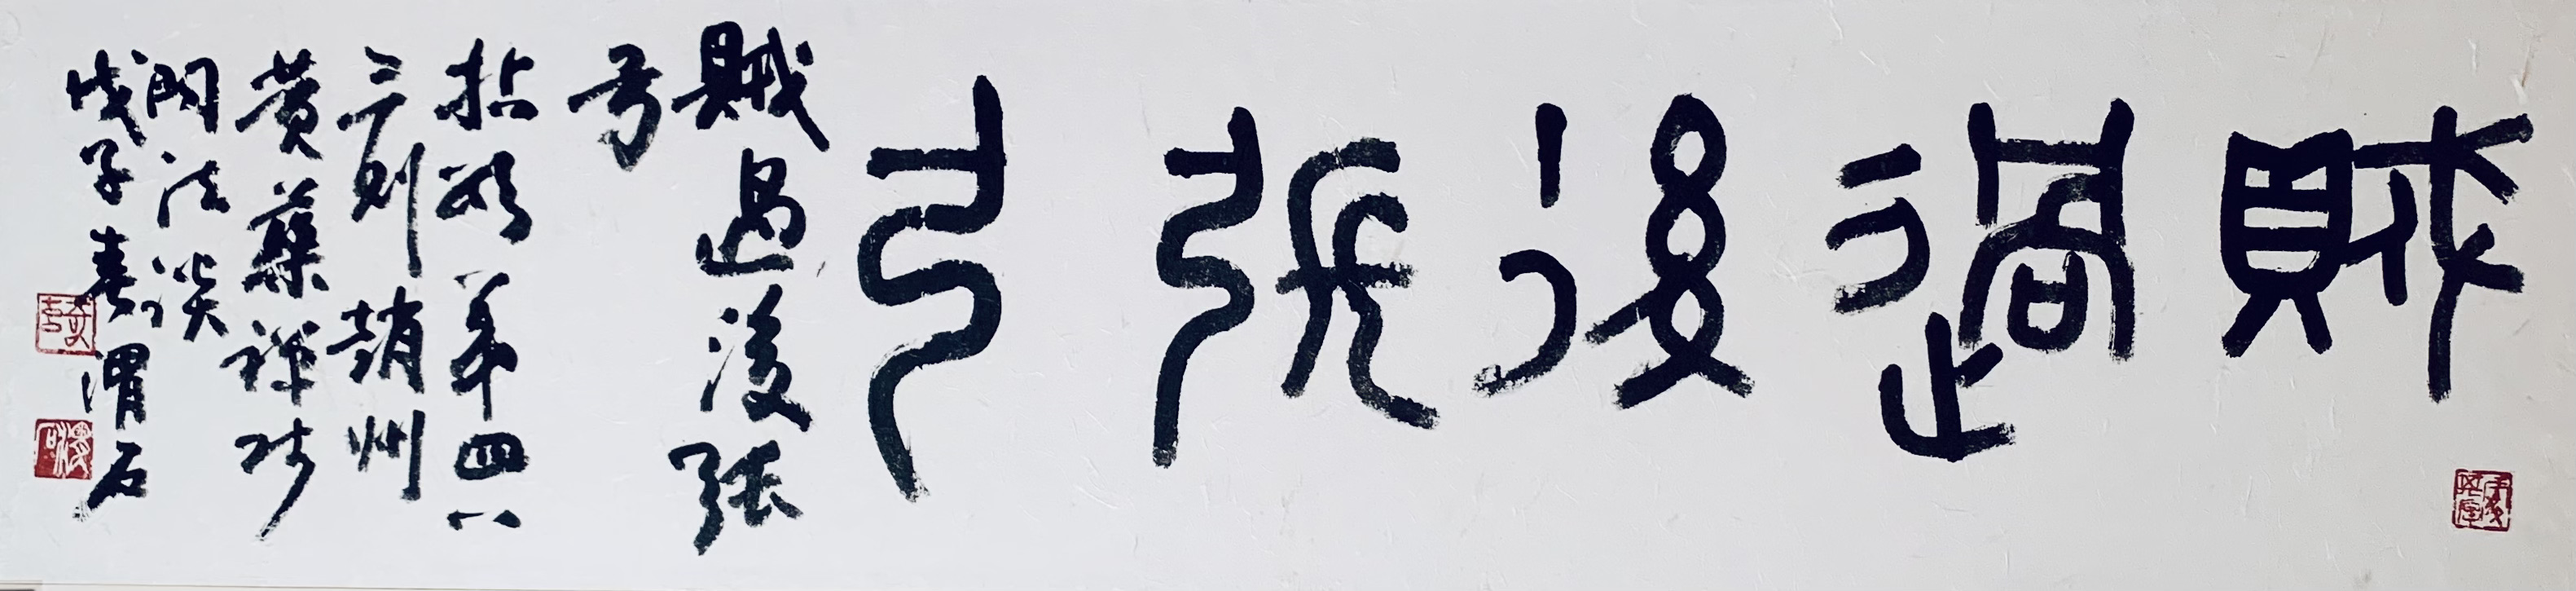 賊過後張弓
賊過後張
弓
拈頌第四八
三則趙州
黃蘗禪師
閗法談
戊子春渭石